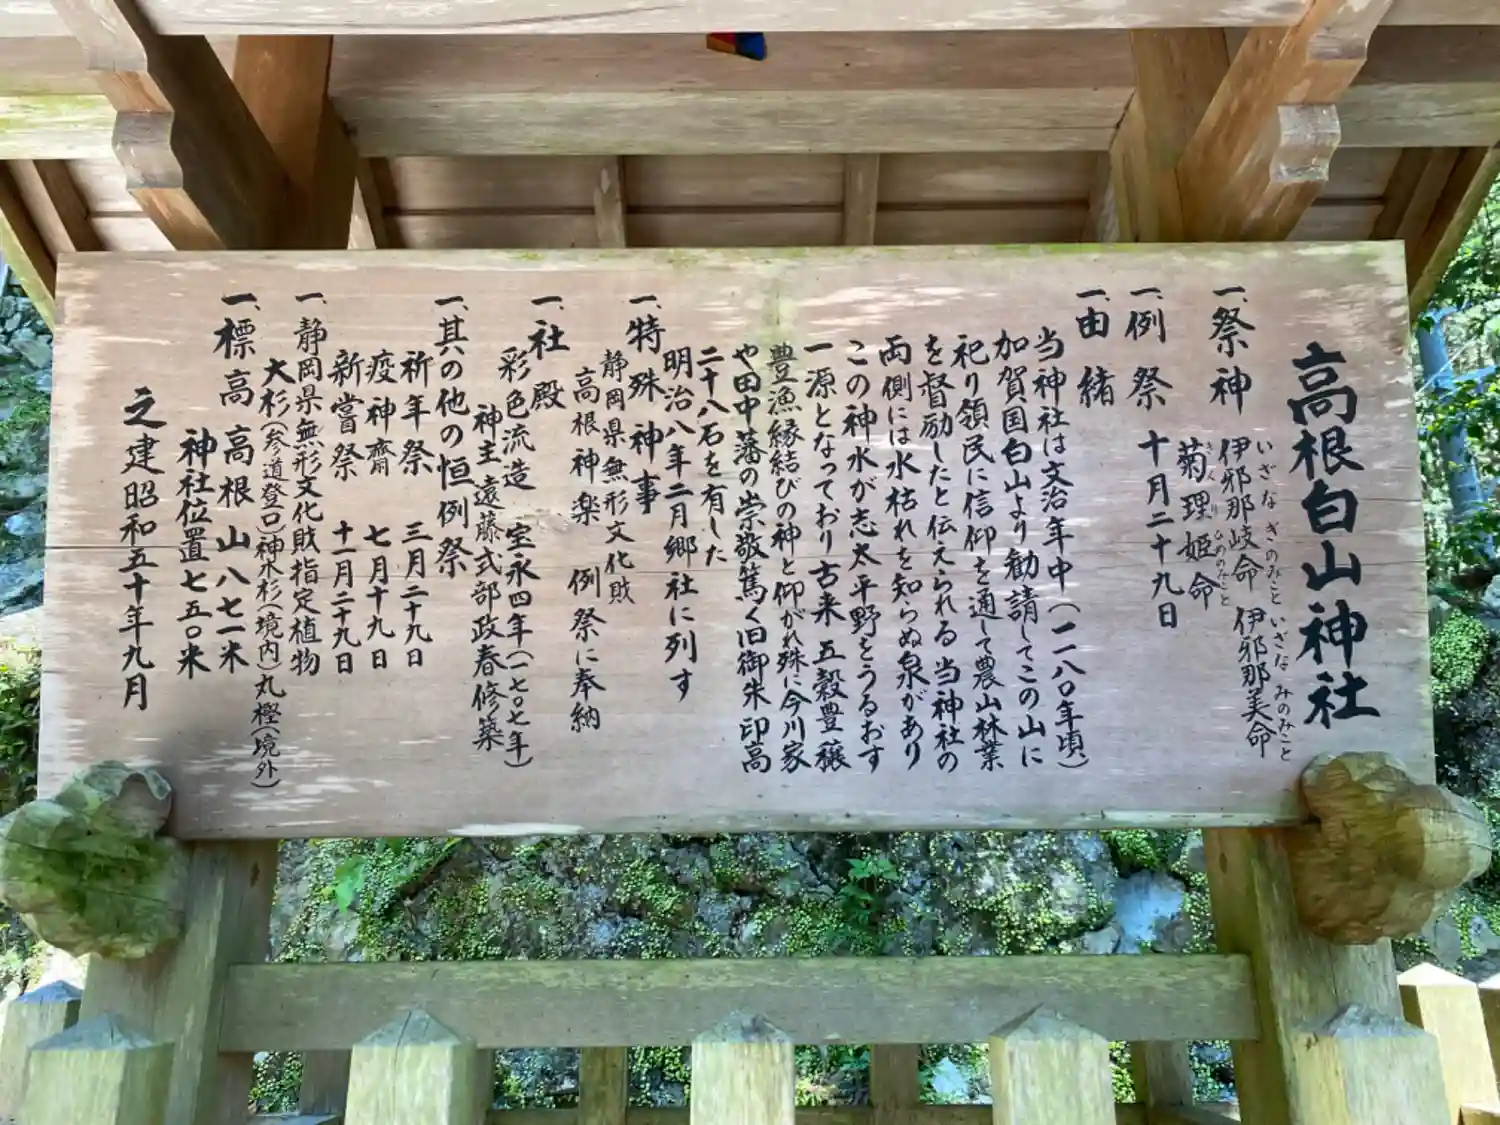 高根白山神社
一、祭神 伊邪那岐命 伊邪那美命
いざなぎのみこと いざなみのみこと
菊理姫命
きくりひめのみこと
一、例祭 十月二十九日
一、由緒
当神社は文治年中（一一八〇年頃）
加賀国白山より勧請してこの山に
祀り領民に信仰を通して農山林業
を督励したと伝えられる 当神社の
両側には水枯れを知らぬ泉があり
この神水が志太平野をうるおす
一源となっており古来 五穀豊穣
豊漁縁結びの神と仰がれ殊に今川家
や田中藩の崇敬篤く旧御朱印高
二十八石を有した
明治八年二月郷社に列す
一、特殊神事
静岡県無形文化敗
高根神楽 例祭に奉納
一、社殿
彩色流造 宝永四年（一七〇七年）
神主遠藤式部政春修築
一、其の他の恒例祭
祈年祭 三月二十九日
疫神齋 七月十九日
新嘗祭 十一月二十九日
一、静岡県無形文化敗指定植物
大杉（参道登口）神水杉（境内）丸樫（境外）
一、標高 高根山八七一米
神社位置七五〇米
之建昭和五十年九月